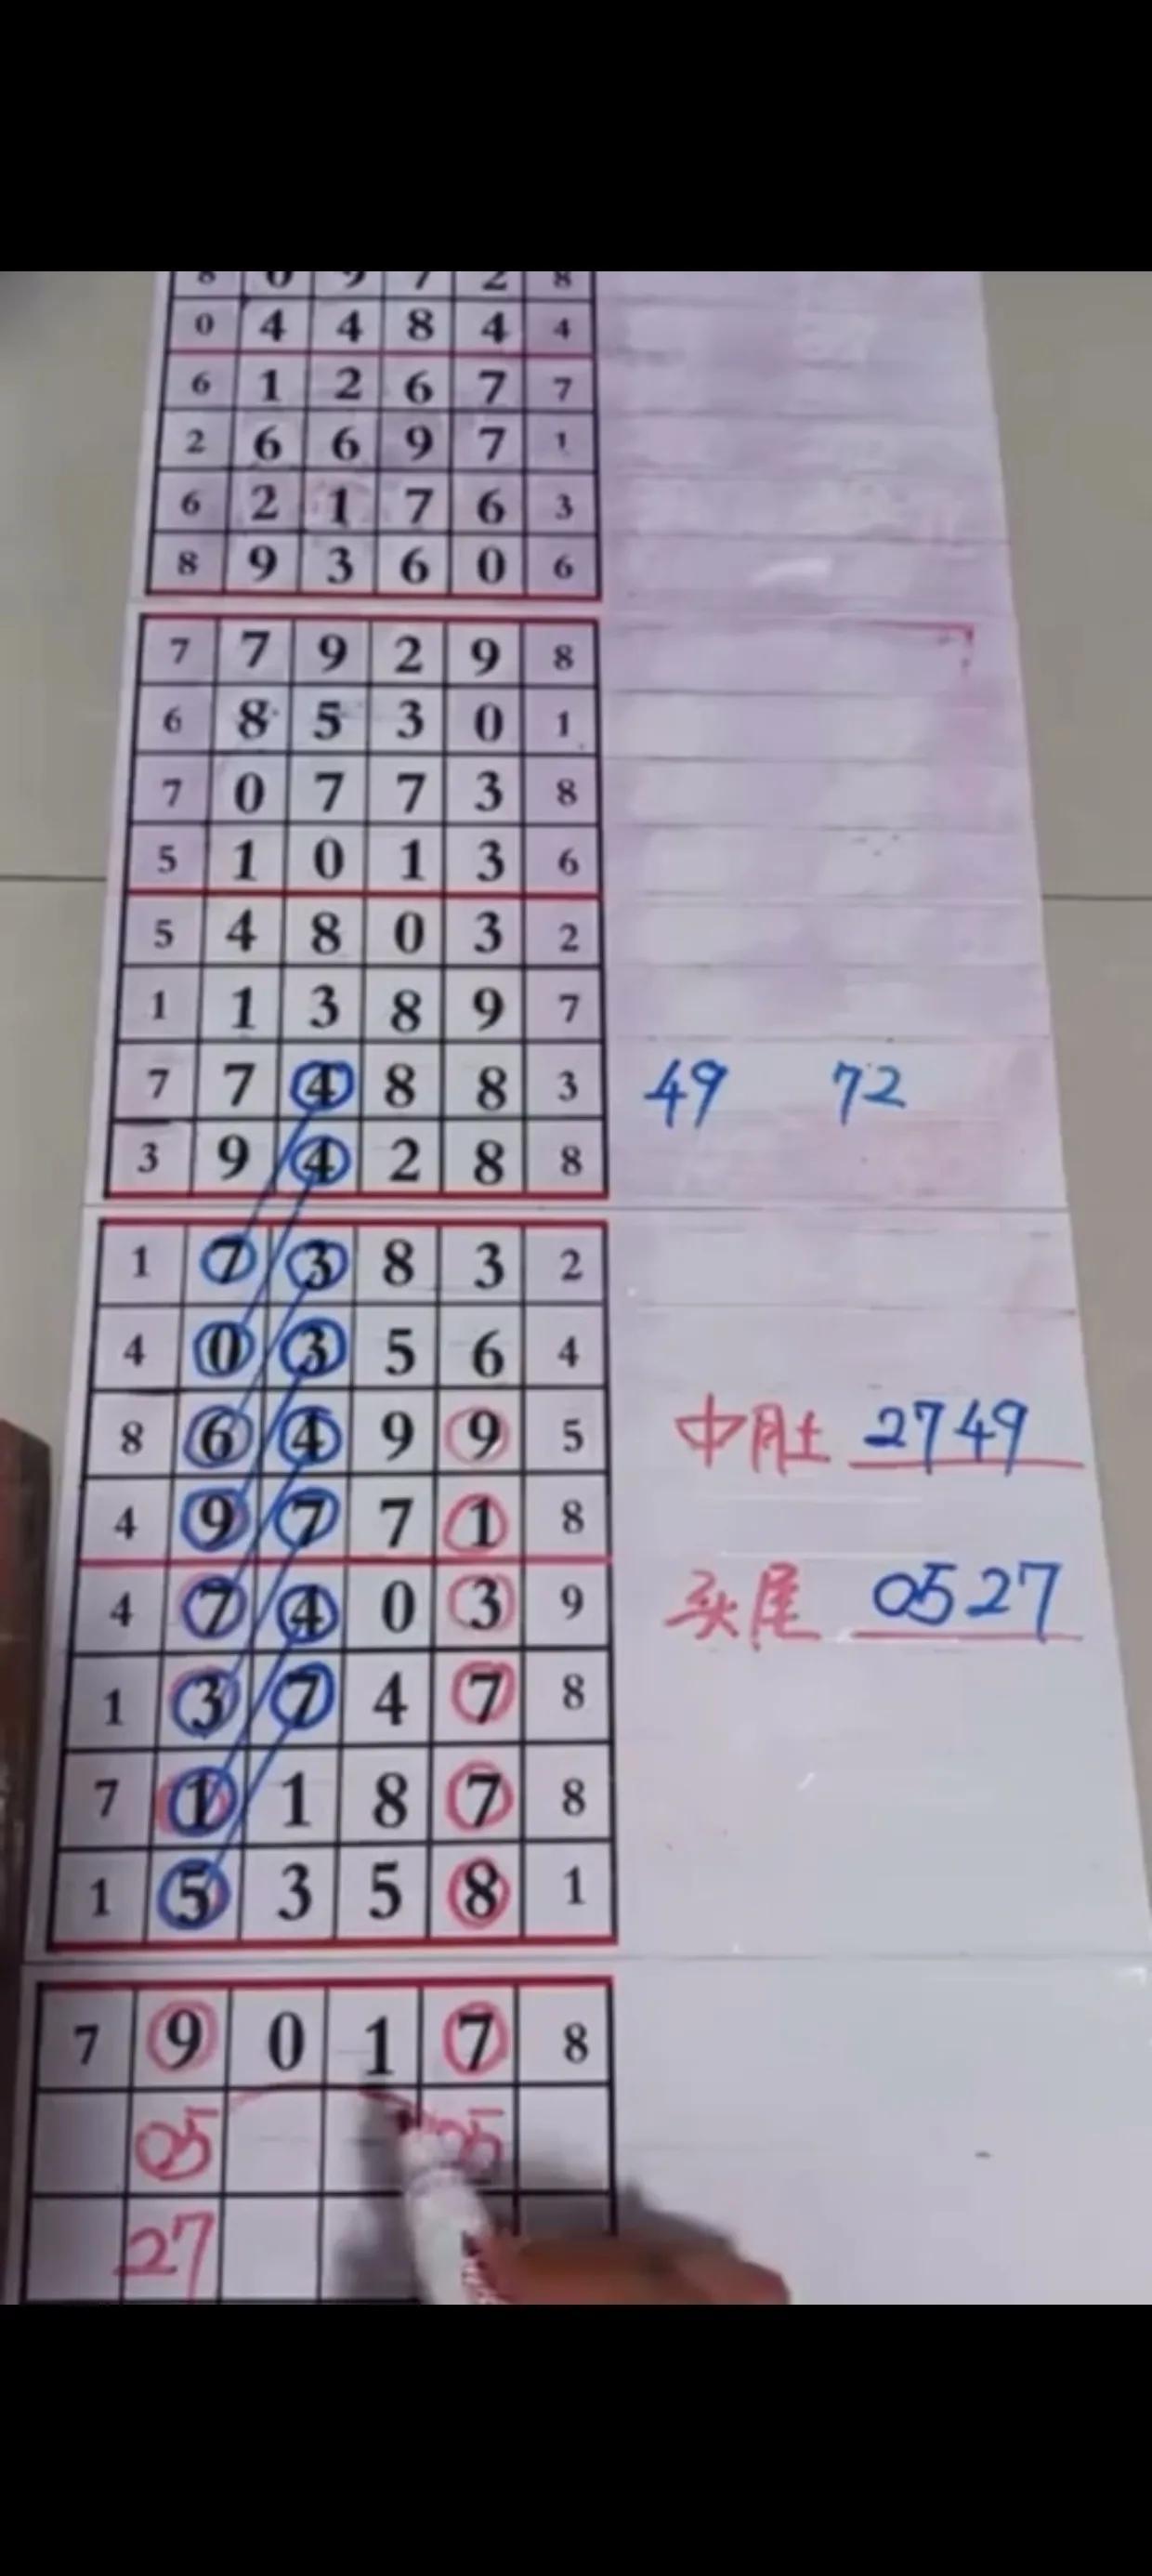 8 0 9 7 2 8
0 4 4 8 4 4
6 1 2 6 7 7
2 6 6 9 7 1
6 2 1 7 6 3
8 9 3 6 0 6
7 7 9 2 9 8
6 8 5 3 0 1
7 0 7 7 3 8
5 1 0 1 3 6
5 4 8 0 3 2
1 1 3 8 9 7
7 7 4 8 8 3 49 72
3 9 4 2 8 8
1 7 3 8 3 2
4 0 3 5 6 4
8 6 4 9 9 5 中肚 2749
4 9 7 7 1 8
4 7 4 0 3 9 头尾 0527
1 3 7 4 7 8
7 1 1 8 7 8
1 5 3 5 8 1
7 9 0 1 7 8
05 05
27